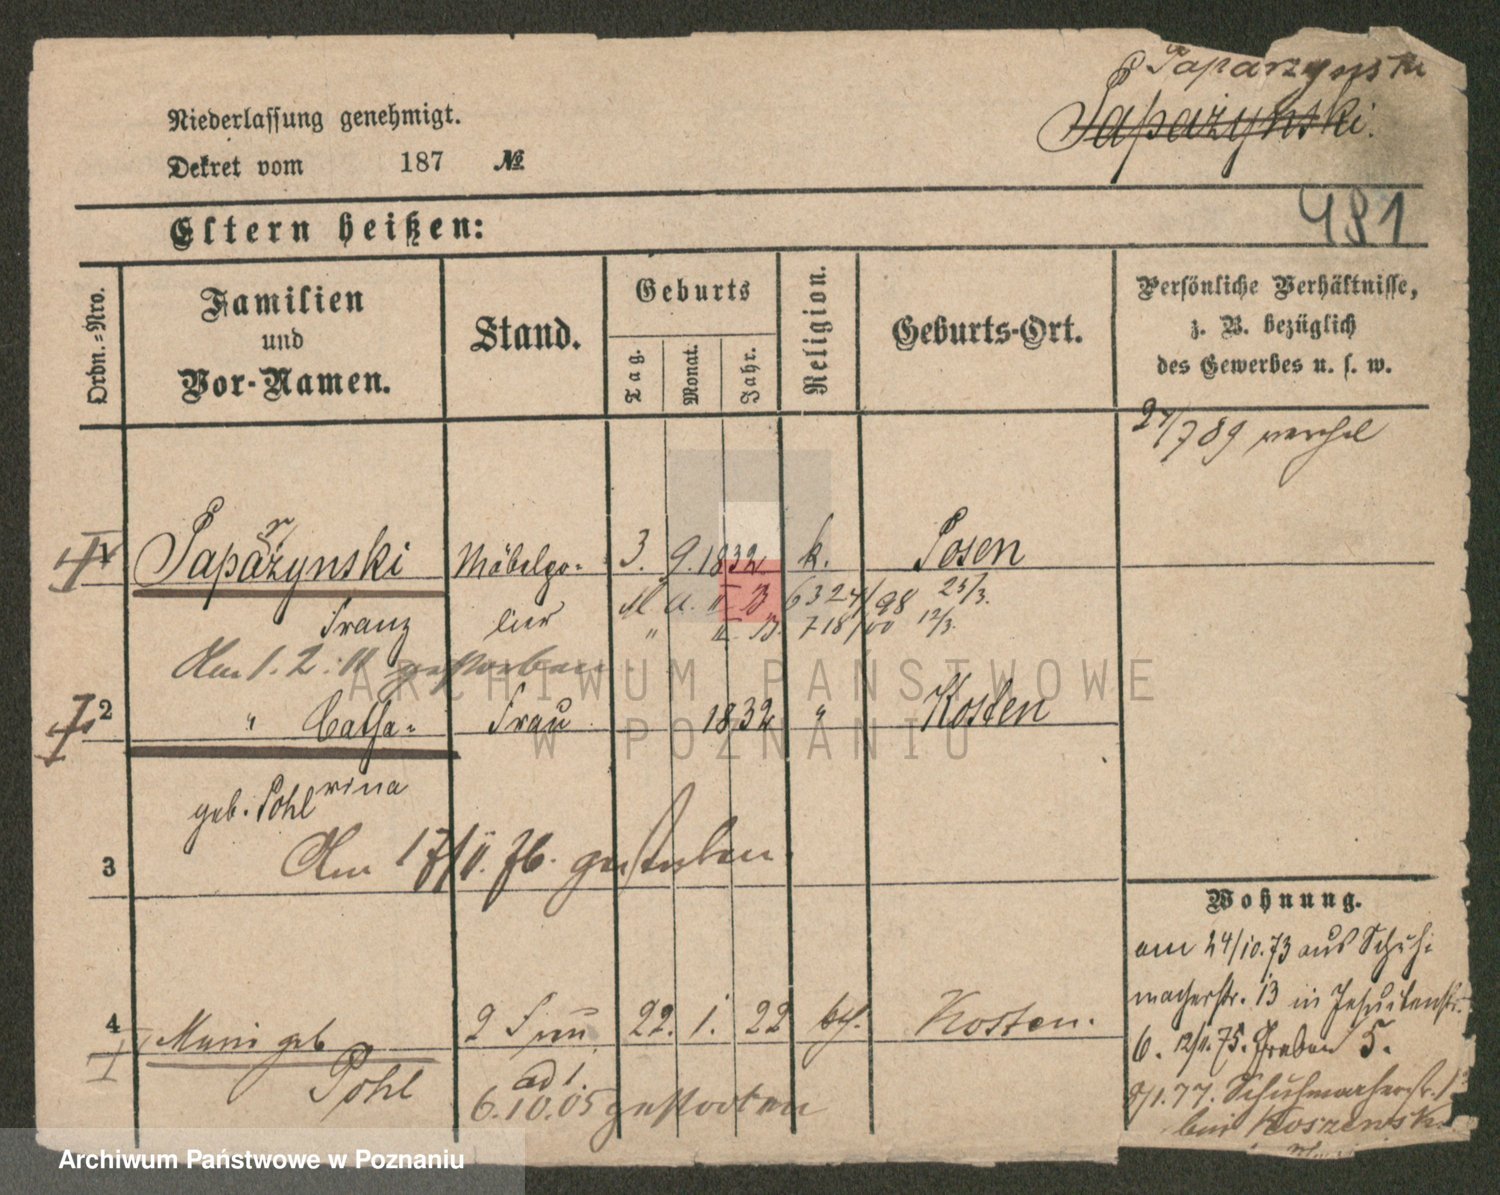 Paparzynski
Papażynski.
Niederlassung genehmigt.
Dekret vom 187 №
481
Eltern heißen:
Ordn.=Nro.
Familien
und
Vor-Namen.
Stand.
Geburts
Tag.
Monat.
Jahr.
Religion.
Geburts-Ort.
Persönliche Verhältnisse,
z. B. bezüglich
des Gewerbes u. s. w.
27/7 89
1 Papażynski Möbelpo= 3. 9. 1832 k. Posen
r
Franz lier
6324/98 25/3.
" II. B. 718/00 12/3.
Am 1. 2. 11 gestorben.
2 " Catha= Frau 1832 " Kosten
rina
geb. Pohl
3
Am 17/II. 76. gestorben.
Wohnung.
am 24/10.73 aus Schuh=
macherstr. 13 in Jesuitenstr.
6. 12/11.75. Graben 5.
9/1.77. Schuhmacherstr. 13
bei Koszewski
4 Marie geb 2 Frau 22. 1. 22 kth. Kosten.
Pohl
ad 1.
6.10.05 gestorben
ARCHIWUM PAŃSTWOWE
W POZNANIU
Archiwum Państwowe w Poznaniu